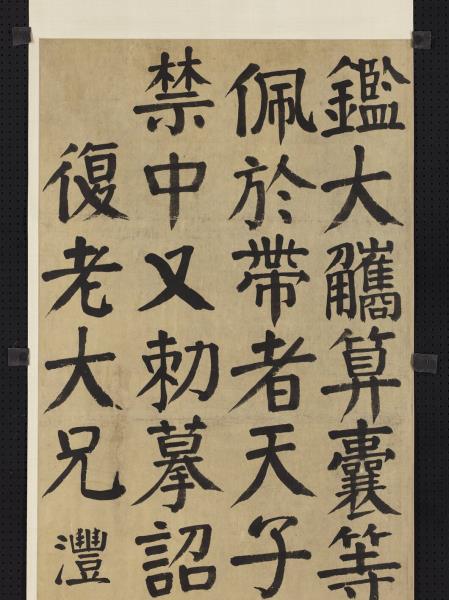 鑑大觿算囊等
佩於帶者天子
禁中又勅摹詔
復老大兄
灃